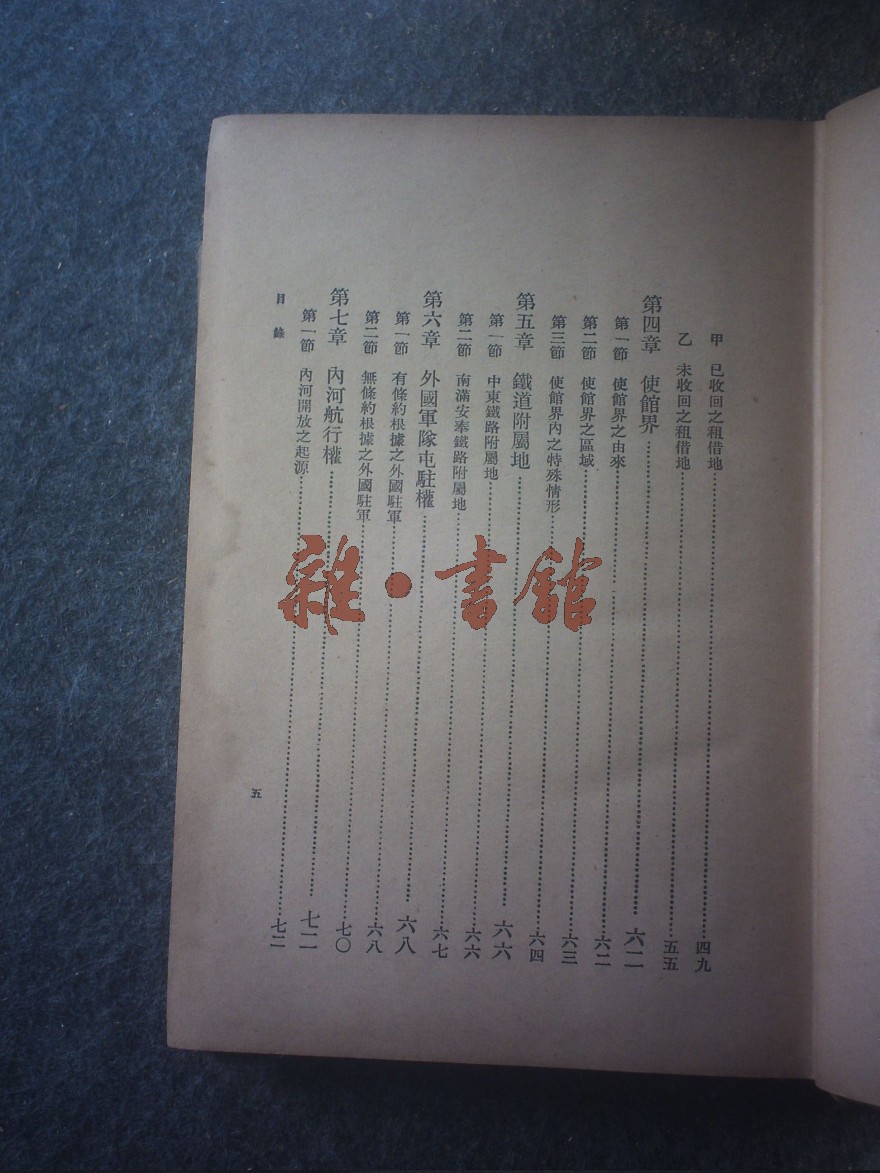 甲 已收回之租借地……四九
乙 未收回之租借地……五五
第四章 使館界……六二
第一節 使館界之由來……六二
第二節 使館界之區域……六三
第三節 使館界內之特殊情形……六四
第五章 鐵道附屬地……六六
第一節 中東鐵路附屬地……六六
第二節 南滿安奉鐵路附屬地……六七
第六章 外國軍隊屯駐權……六八
第一節 有條約根據之外國駐軍……六八
第二節 無條約根據之外國駐軍……七〇
第七章 內河航行權……七二
第一節 內河開放之起源……七二
目錄
五
雜·書館